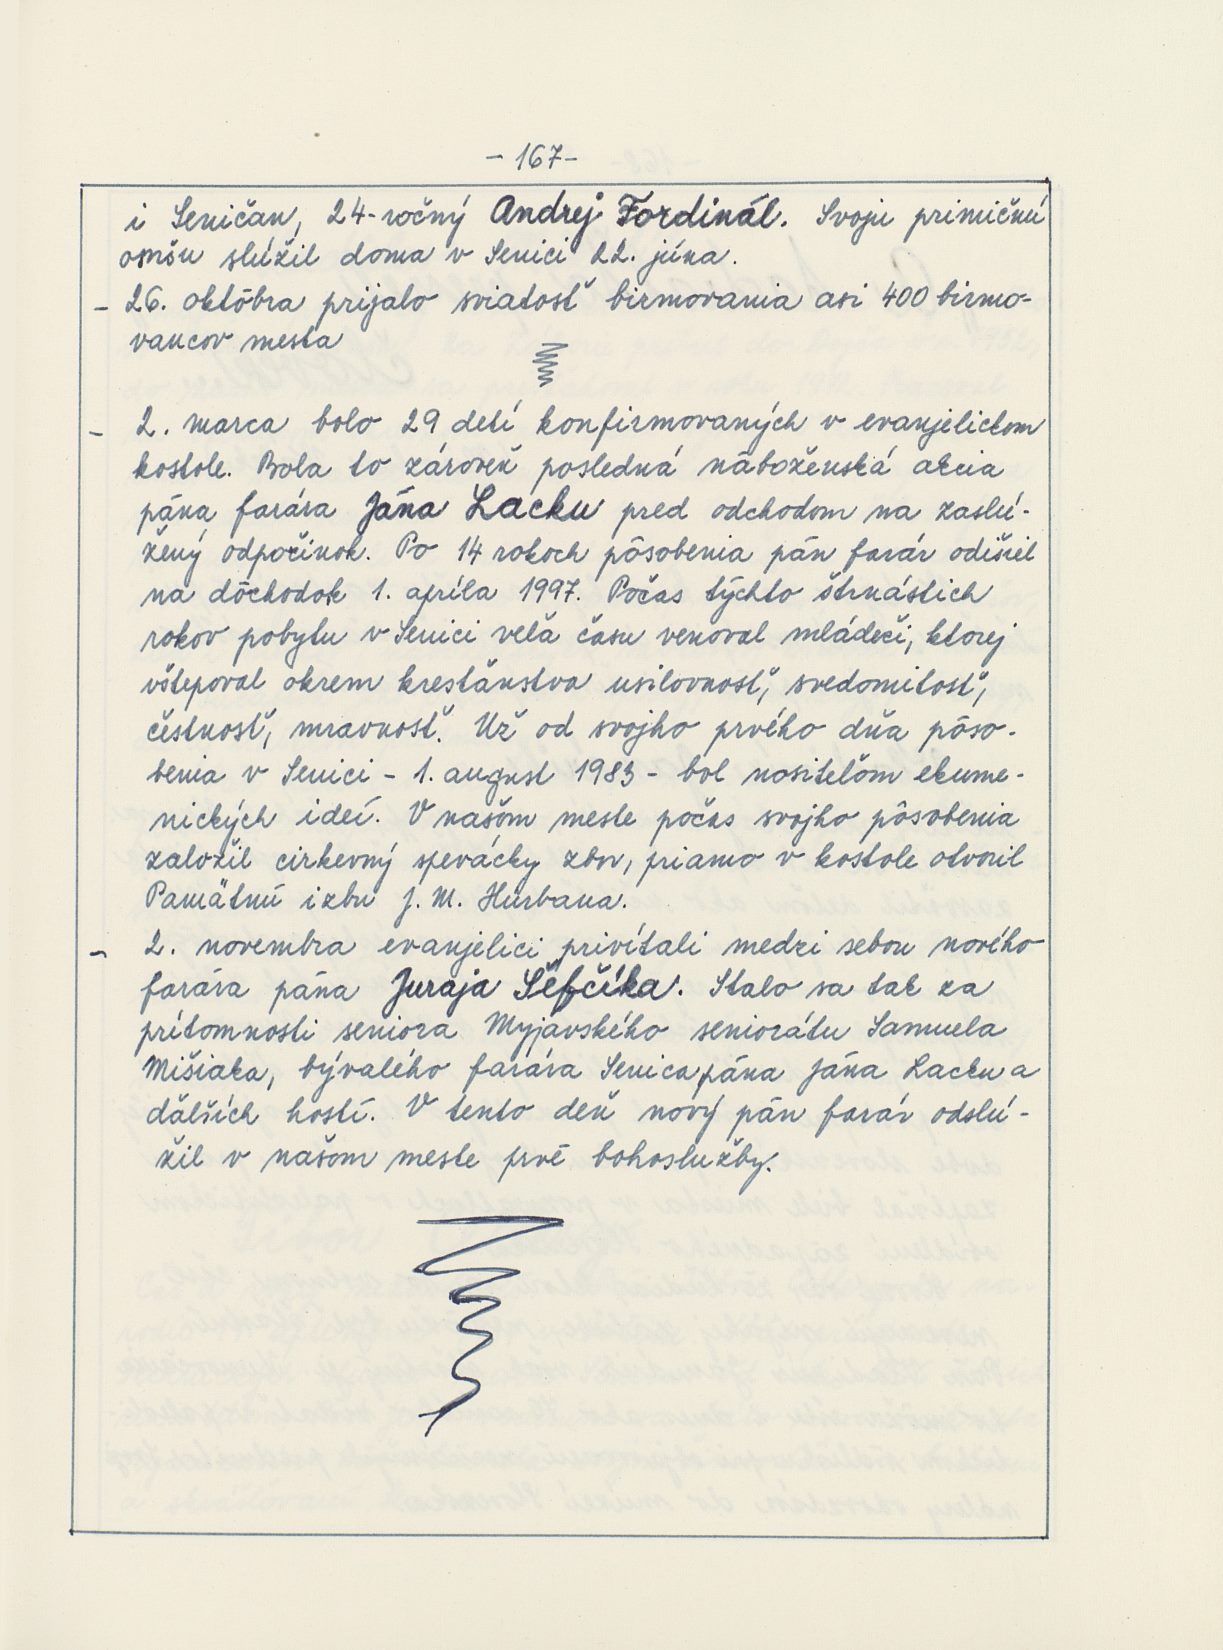 - 167 -
i Seničan, 24-ročný Andrej Fordinál. Svoju primičnú
omšu slúžil doma v Senici 22. júna.
- 26. októbra prijalo sviatosť birmovania asi 400 birmo-
vancov mesta
- 2. marca bolo 29 detí konfirmovaných v evanjelickom
kostole. Bola to zároveň posledná náboženská akcia
pána farára Jána Lacku pred odchodom na zaslú-
žený odpočinok. Po 14 rokoch pôsobenia pán farár odišiel
na dôchodok 1. apríla 1997. Počas týchto štrnástich
rokov pobytu v Senici veľa času venoval mládeži, ktorej
vštepoval okrem kresťanstva usilovnosť, svedomitosť,
čestnosť, mravnosť. Už od svojho prvého dňa pôso-
benia v Senici - 1. august 1983 - bol nositeľom ekume-
nických ideí. V našom meste počas svojho pôsobenia
založil cirkevný spevácky zbor, priamo v kostole otvoril
Pamätnú izbu J. M. Hurbana.
- 2. novembra evanjelici privítali medzi sebou nového
farára pána Juraja Šefčíka. Stalo sa tak za
prítomnosti seniora Myjavského seniorátu Samuela
Mišiaka, bývalého farára Senica pána Jána Lacku a
ďalších hostí. V tento deň nový pán farár odslú-
žil v našom meste prvé bohoslužby.